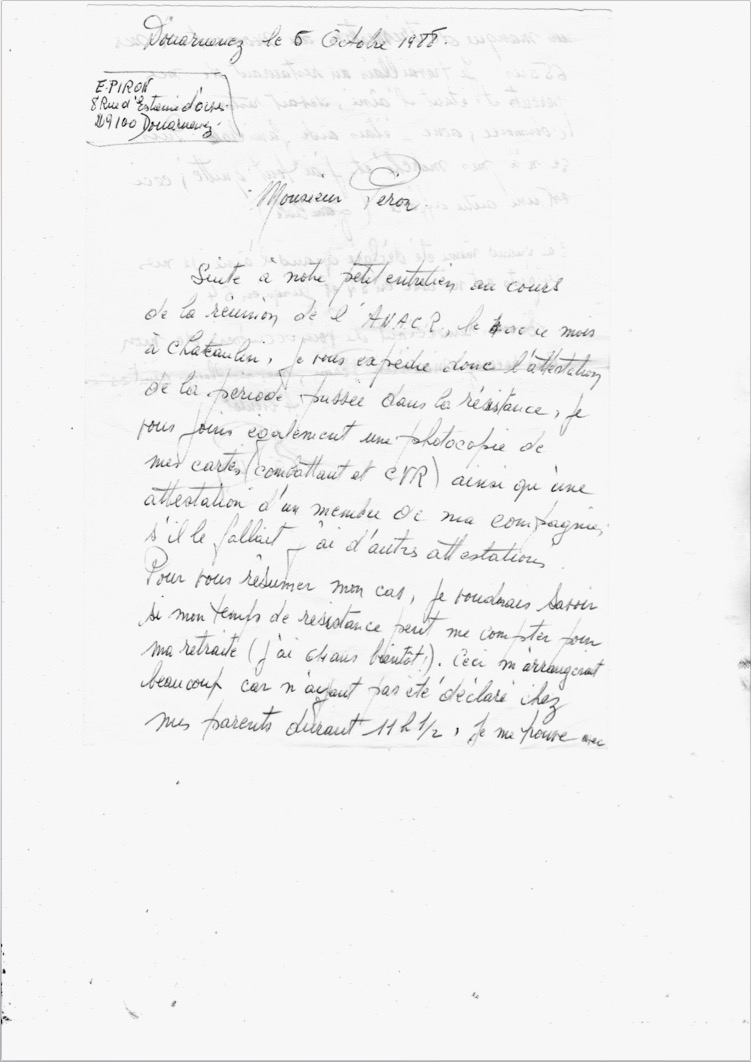 Douarnenez le 5 Octobre 1988.
E. PIRON
8 Rue d'Estienne d'Orves
29100 Douarnenez
Monsieur Peron
Suite à notre petit entretien au cours
de la réunion de l'ANACR, le de ce mois
à Chateaulin, je vous expédie donc l'attestation
de la periode passée dans la résistance, je
vous joins également une photocopie de
mes cartes (combattant et CVR) ainsi qu'une
attestation d'un membre de ma compagnie,
s'il le fallait j'ai d'autres attestations.
Pour vous résumer mon cas, je voudrais savoir
si mon temps de resistance peut me compter pour
ma retraite (j'ai ans bientôt!). Ceci m'arrangerait
beaucoup car n'ayant pas été déclaré chez
mes parents durant 11 1/2, je me trouve avec